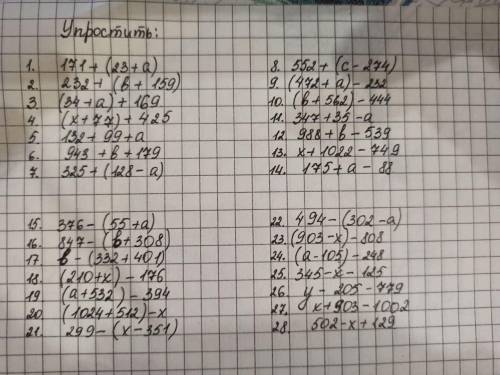 Упростить:
1. 171 + (23 + a)
2. 232 + (b + 159)
3. (34 + a) + 169
4. (x + 77) + 425
5. 132 + 99 + a
6. 943 + b + 179
7. 325 + (128 - a)
8. 552 + (c - 274)
9. (472 + a) - 232
10. (b + 562) - 444
11. 347 + 35 - a
12. 988 + b - 539
13. x + 1022 - 749
14. 175 + a - 88
15. 376 - (55 + a)
16. 847 - (b + 308)
17. b - (332 + 401)
18. (210 + x) - 176
19. (a + 532) - 394
20. (1024 + 512) - x
21. 299 - (x - 351)
22. 494 - (302 - a)
23. (903 - x) - 808
24. (a - 105) - 248
25. 345 - x - 125
26. y - 205 - 779
27. x + 903 - 1002
28. 502 - x + 129